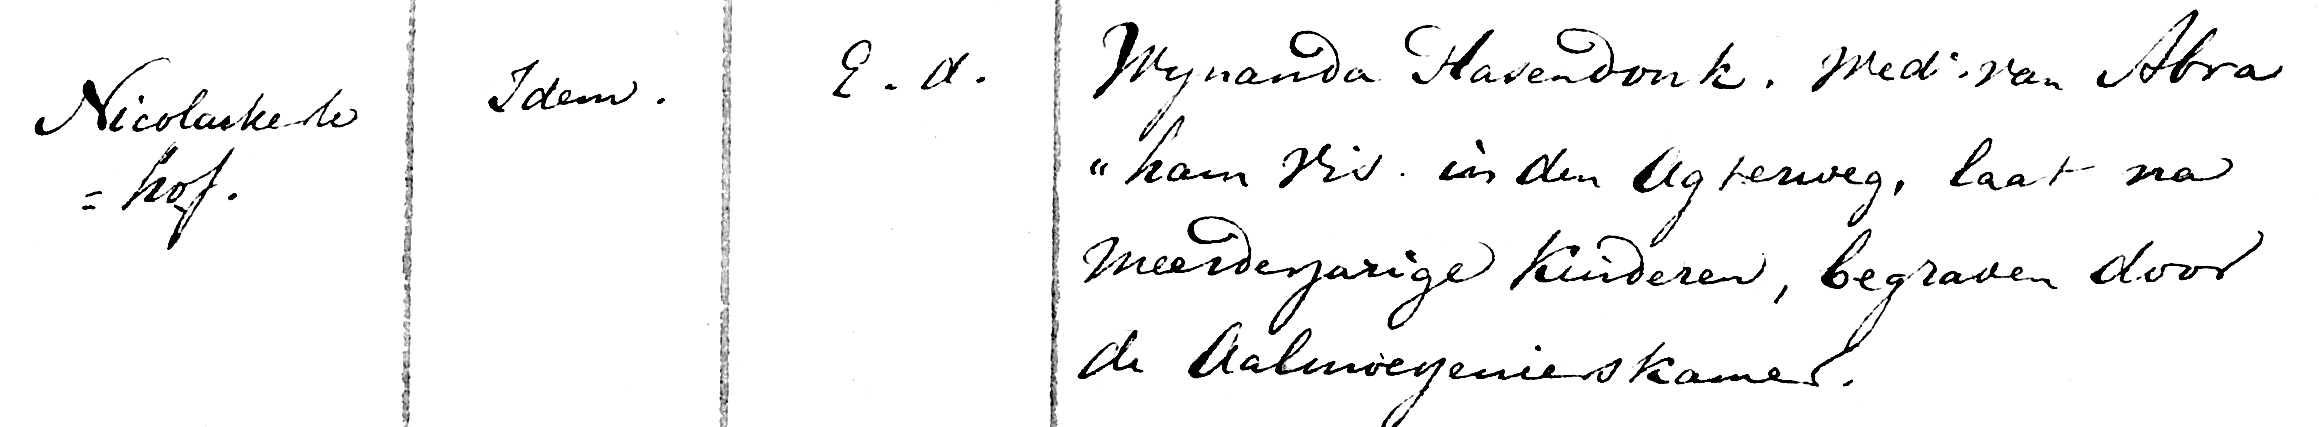 Nicolaikerk
= hof.
Idem.
E. d.
Wynanda Havendonk. Wed: van Abra
" ham Vis. in den Agterweg, laat na
meerderjarige Kinderen, begraven door
de Aalmoezenierskamer.